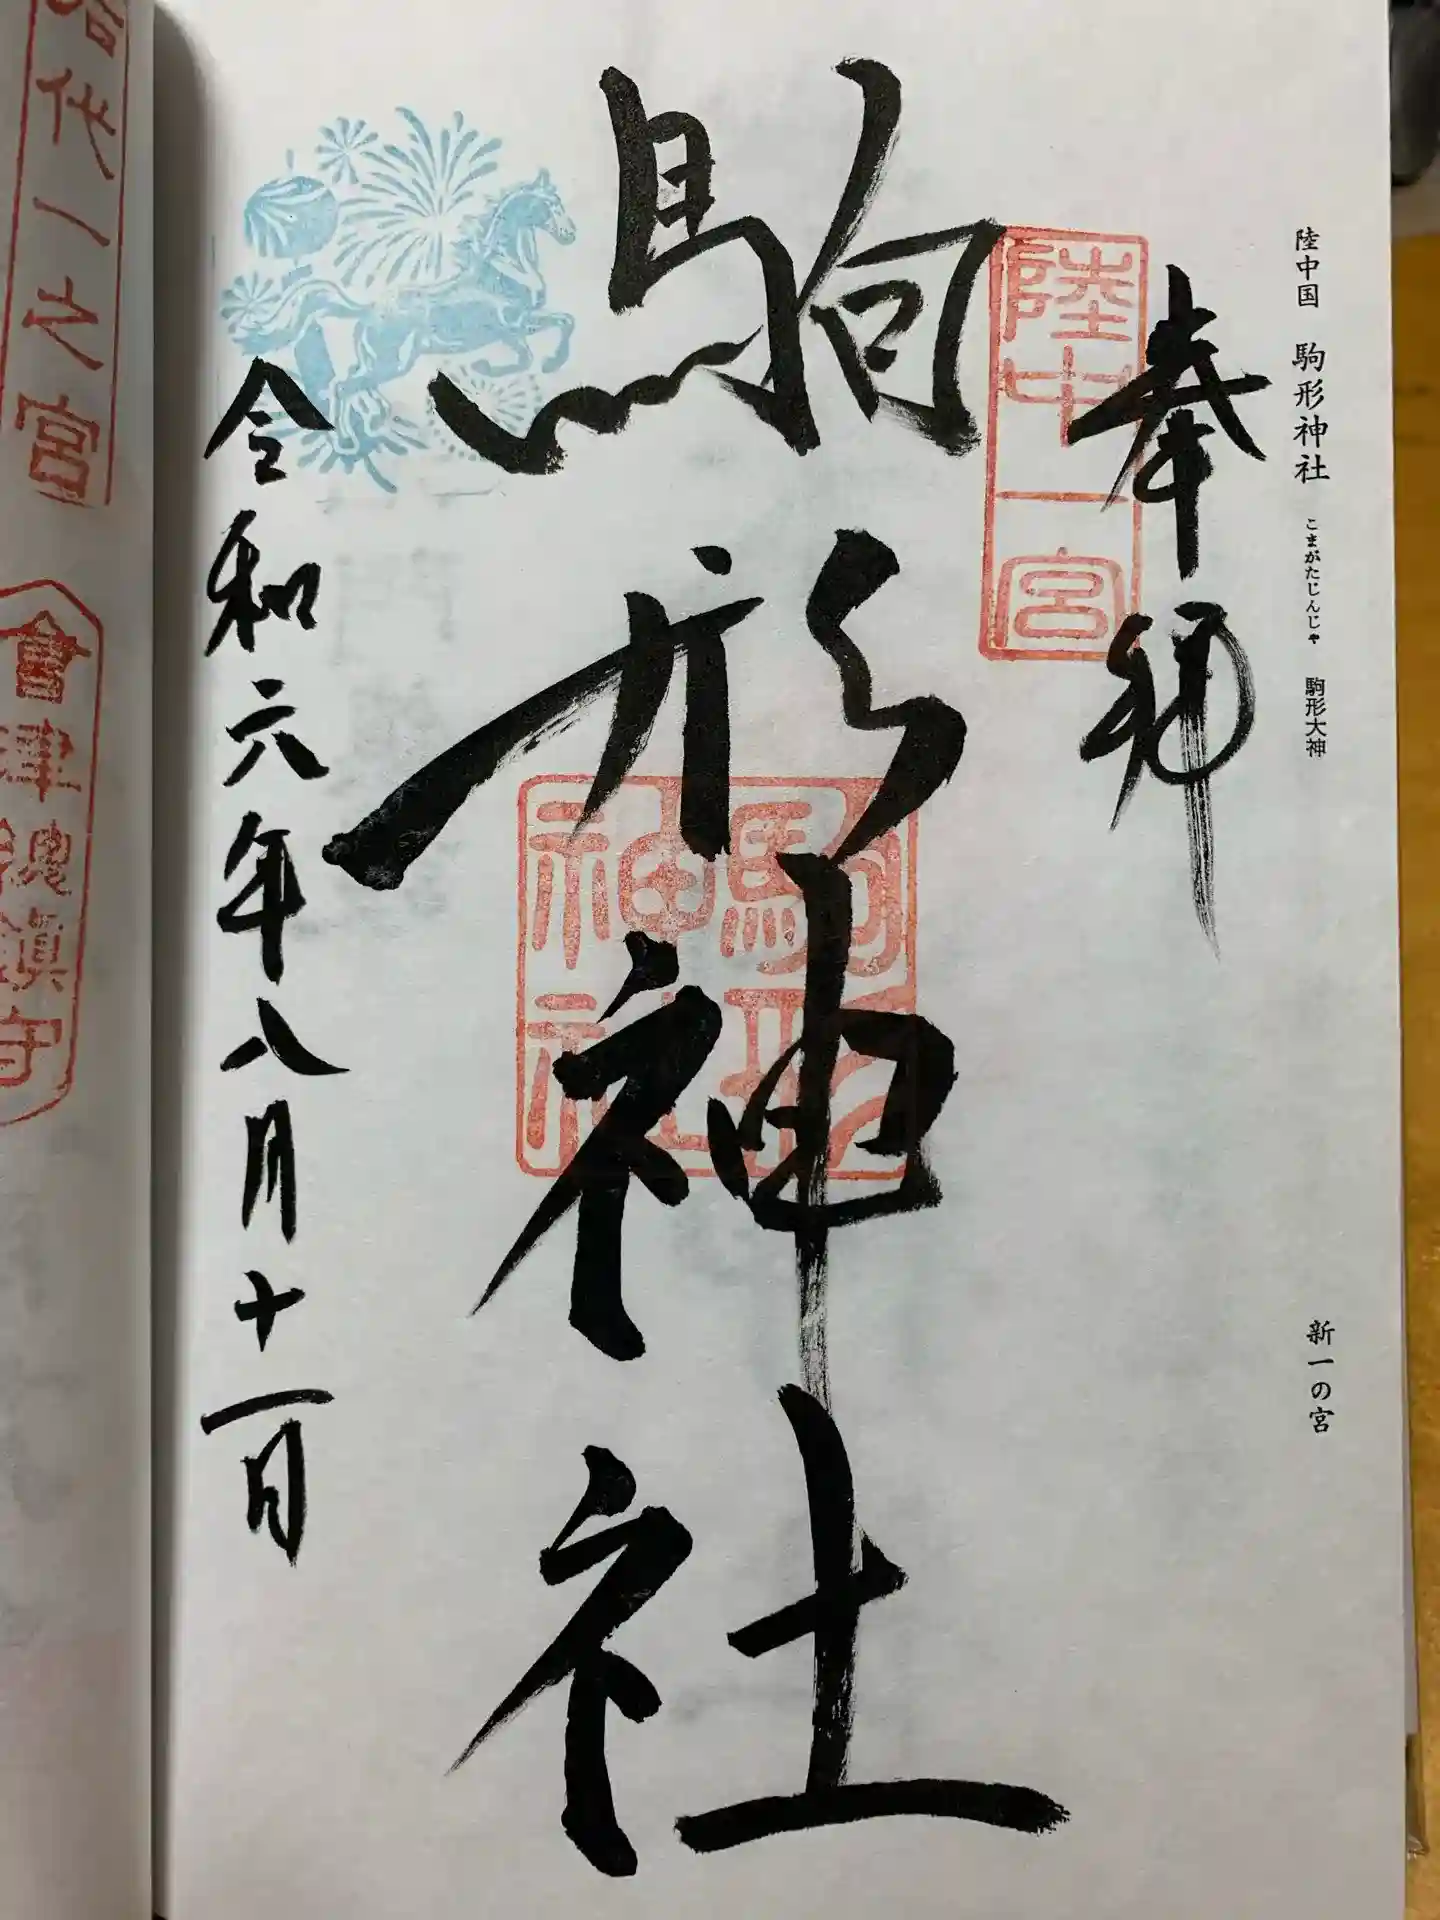 陸中国 駒形神社 こまがたじんじゃ 駒形大神
新一の宮
奉拝
陸中一宮
駒形神社
駒形
神社
令和六年八月十一日
代一之宮
會津總鎮守